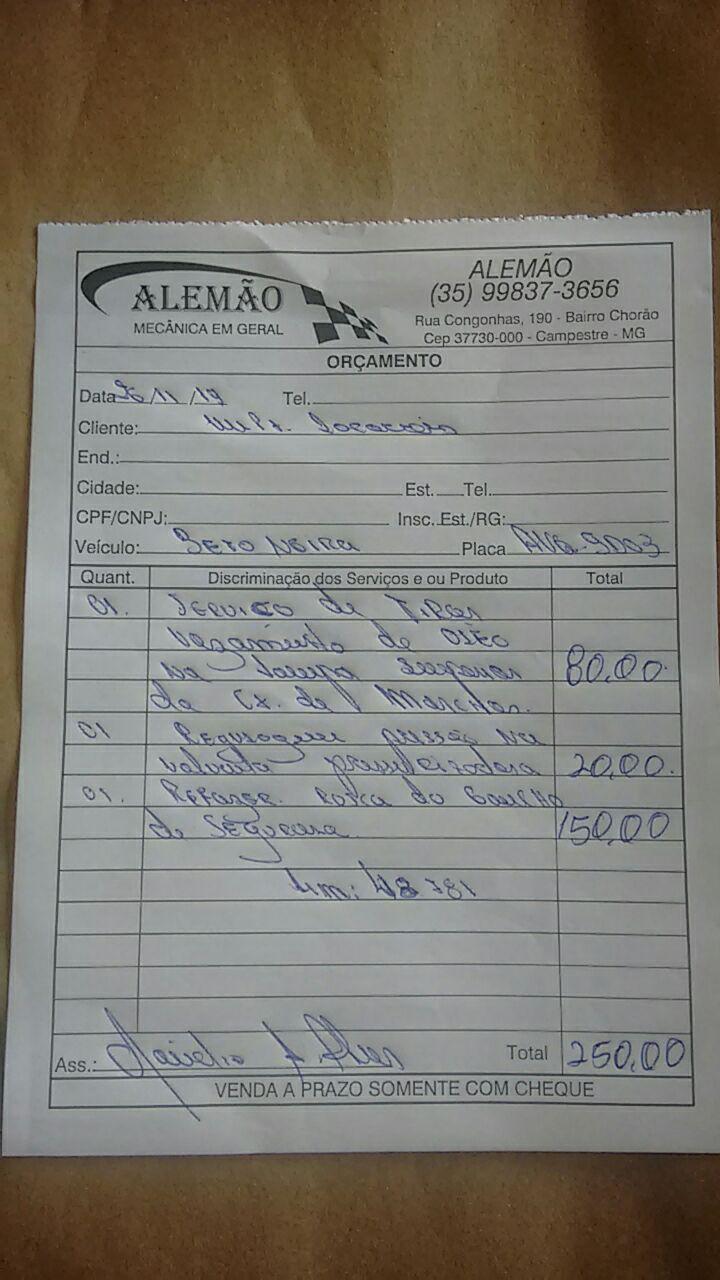 ALEMÃO
MECÂNICA EM GERAL
ALEMÃO
(35) 99837-3656
Rua Congonhas, 190 - Bairro Chorão
Cep 37730-000 - Campestre - MG
ORÇAMENTO
Data 26/11/19 Tel.
Cliente:
End.:
Cidade: Est. Tel.
CPF/CNPJ: Insc. Est./RG:
Veículo: BETONEIRA Placa
Quant. Discriminação dos Serviços e ou Produto Total
01. Serviço de Tirar
Vazamento de Oleo
na Tampa Superior 80,00
da Cx. de Marchas.
01 pressão na
valvula 20,00.
01. Rosca do Gancho
de Segurança 150,00
Km:
Ass.: Total 250,00
VENDA A PRAZO SOMENTE COM CHEQUE